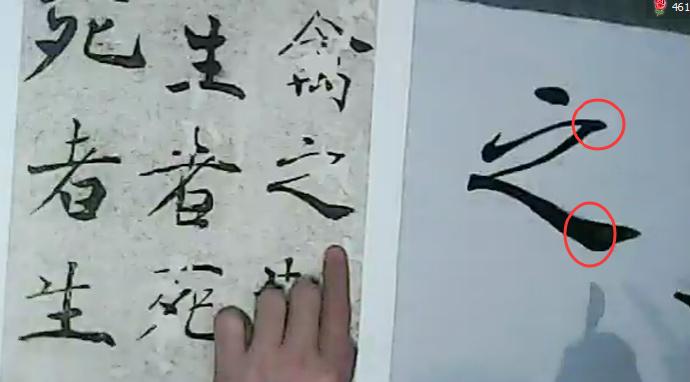 禽之
生者死
死者生
之
461